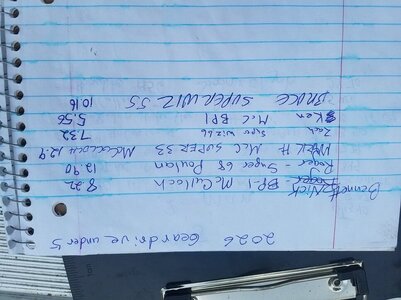 2026 Geardrive under 5
Bennett Nick BP-1 McCulloch 8.22
Roger - Super 68 Poulan 12.90
MARK H Mcc SUPER 33 12.9
Zach Super Wiz 66 7.32
Ken Mcc BP1 5.56
BRUCE SUPERWIZ 55 10.16